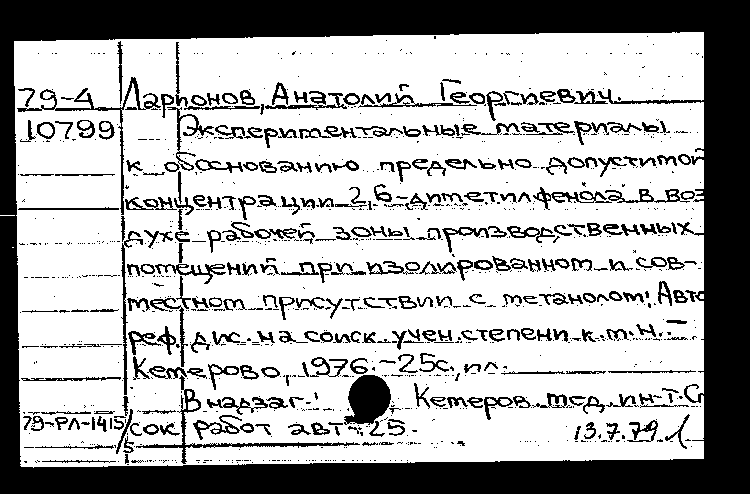 79-4 Ларионов, Анатолий Георгиевич.
10799 Экспериментальные материалы
к обоснованию предельно допустимой
концентрации 2,6-диметилфенола в воз
духе рабочей зоны производственных
помещений при изолированном и сов-
местном присутствии с метанолом: Авто
реф. дис. на соиск. учен. степени к.м.н. —
Кемерово, 1976. — 25с., ил.
В надзаг.: Кемеров. мед. ин-т. Сп
79-РЛ-1415/5 сок работ авт.: 25. 13.7.79